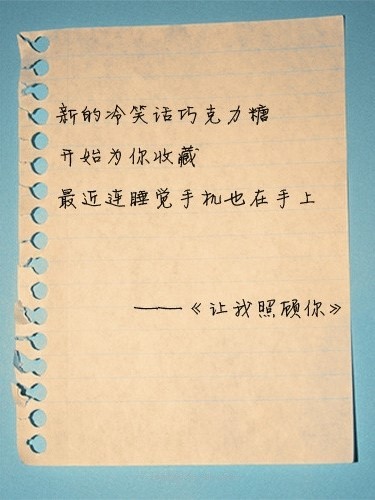 新的冷笑话巧克力糖
开始为你收藏
最近连睡觉手机也在手上
——《让我照顾你》